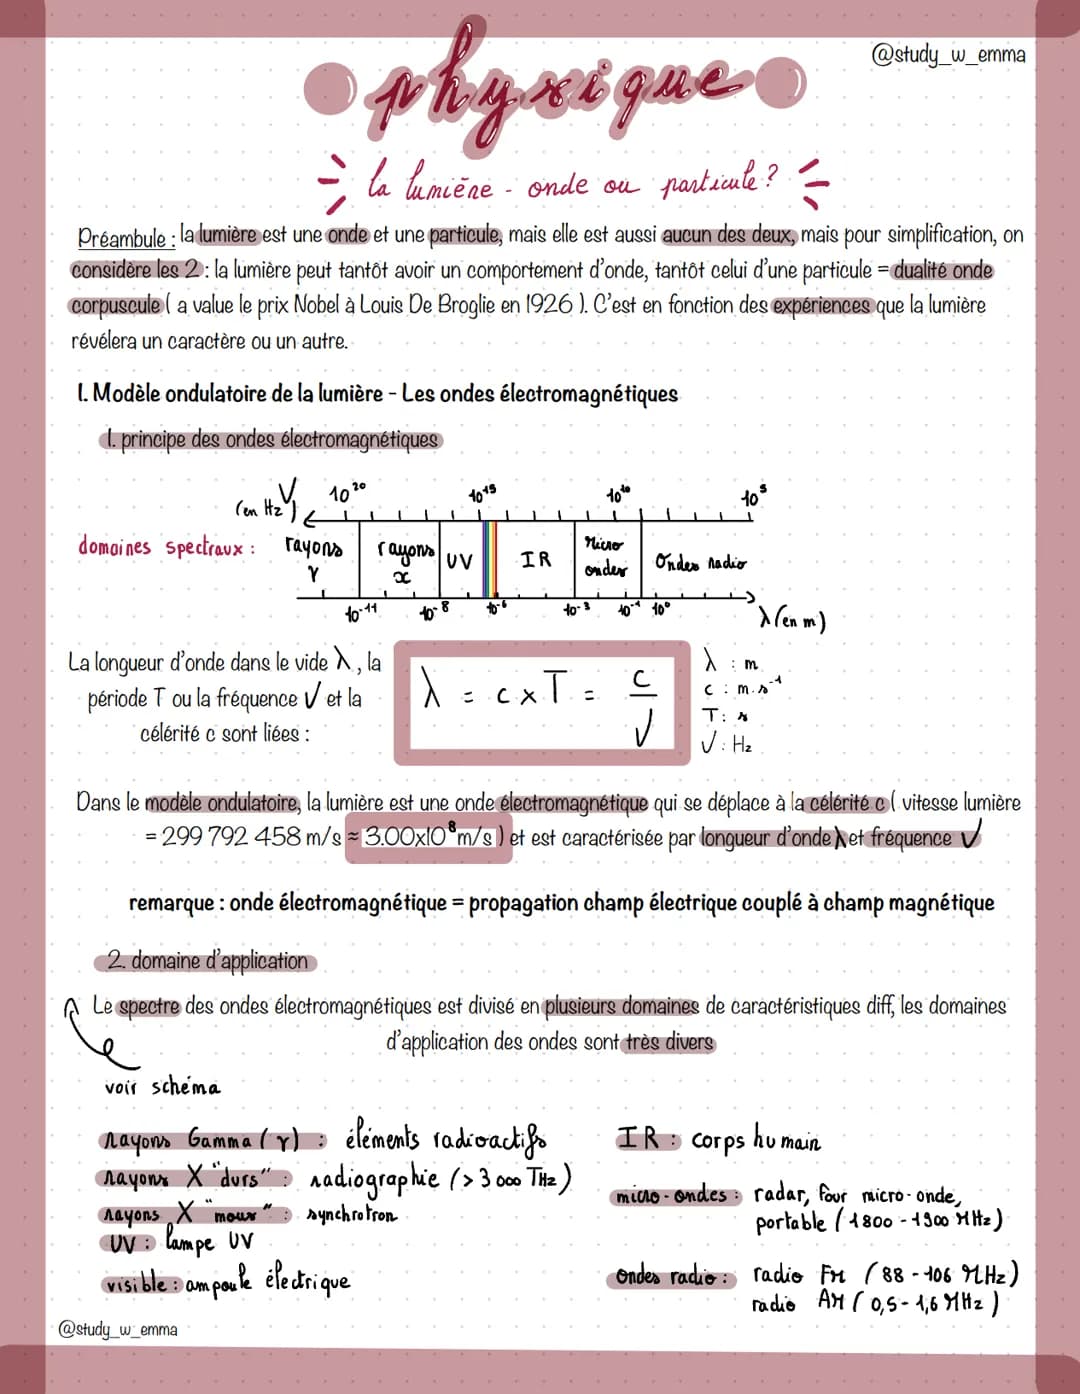 @study_w_emma
physique
la lumière - onde ou particule ?
Préambule : la lumière est une onde et une particule, mais elle est aussi aucun des deux, mais pour simplification, on
considère les 2 : la lumière peut tantôt avoir un comportement d'onde, tantôt celui d'une particule = dualité onde
corpuscule ( a value le prix Nobel à Louis De Broglie en 1926 ). C'est en fonction des expériences que la lumière
révélera un caractère ou un autre.
I. Modèle ondulatoire de la lumière - Les ondes électromagnétiques
1. principe des ondes électromagnétiques
(en Hz) ν 10²⁰ 10¹⁵ 10¹⁰ 10⁵
domaines spectraux : rayons γ rayons x UV IR Micro ondes Ondes radio
10⁻¹¹ 10⁻⁸ 10⁻⁶ 10⁻³ 10⁻¹ 10⁰ λ (en m)
La longueur d'onde dans le vide λ, la
période T ou la fréquence ν et la
célérité c sont liées :
λ = c x T = c / ν
λ : m
c : m.s⁻¹
T : s
ν : Hz
Dans le modèle ondulatoire, la lumière est une onde électromagnétique qui se déplace à la célérité c ( vitesse lumière
= 299 792 458 m/s ≈ 3.00x10⁸ m/s ) et est caractérisée par longueur d'onde λ et fréquence ν
remarque : onde électromagnétique = propagation champ électrique couplé à champ magnétique
2. domaine d'application
Le spectre des ondes électromagnétiques est divisé en plusieurs domaines de caractéristiques diff, les domaines
d'application des ondes sont très divers
voir schéma
rayons Gamma (γ) : éléments radioactifs
rayons X "durs" : radiographie (> 3 000 THz)
rayons X "mous" : synchrotron
UV : lampe UV
visible : ampoule électrique
IR : corps humain
micro-ondes : radar, four micro-onde,
portable (1800 - 1900 MHz)
Ondes radio : radio FM (88 - 106 MHz)
radio AM (0,5 - 1,6 MHz)
@study_w_emma